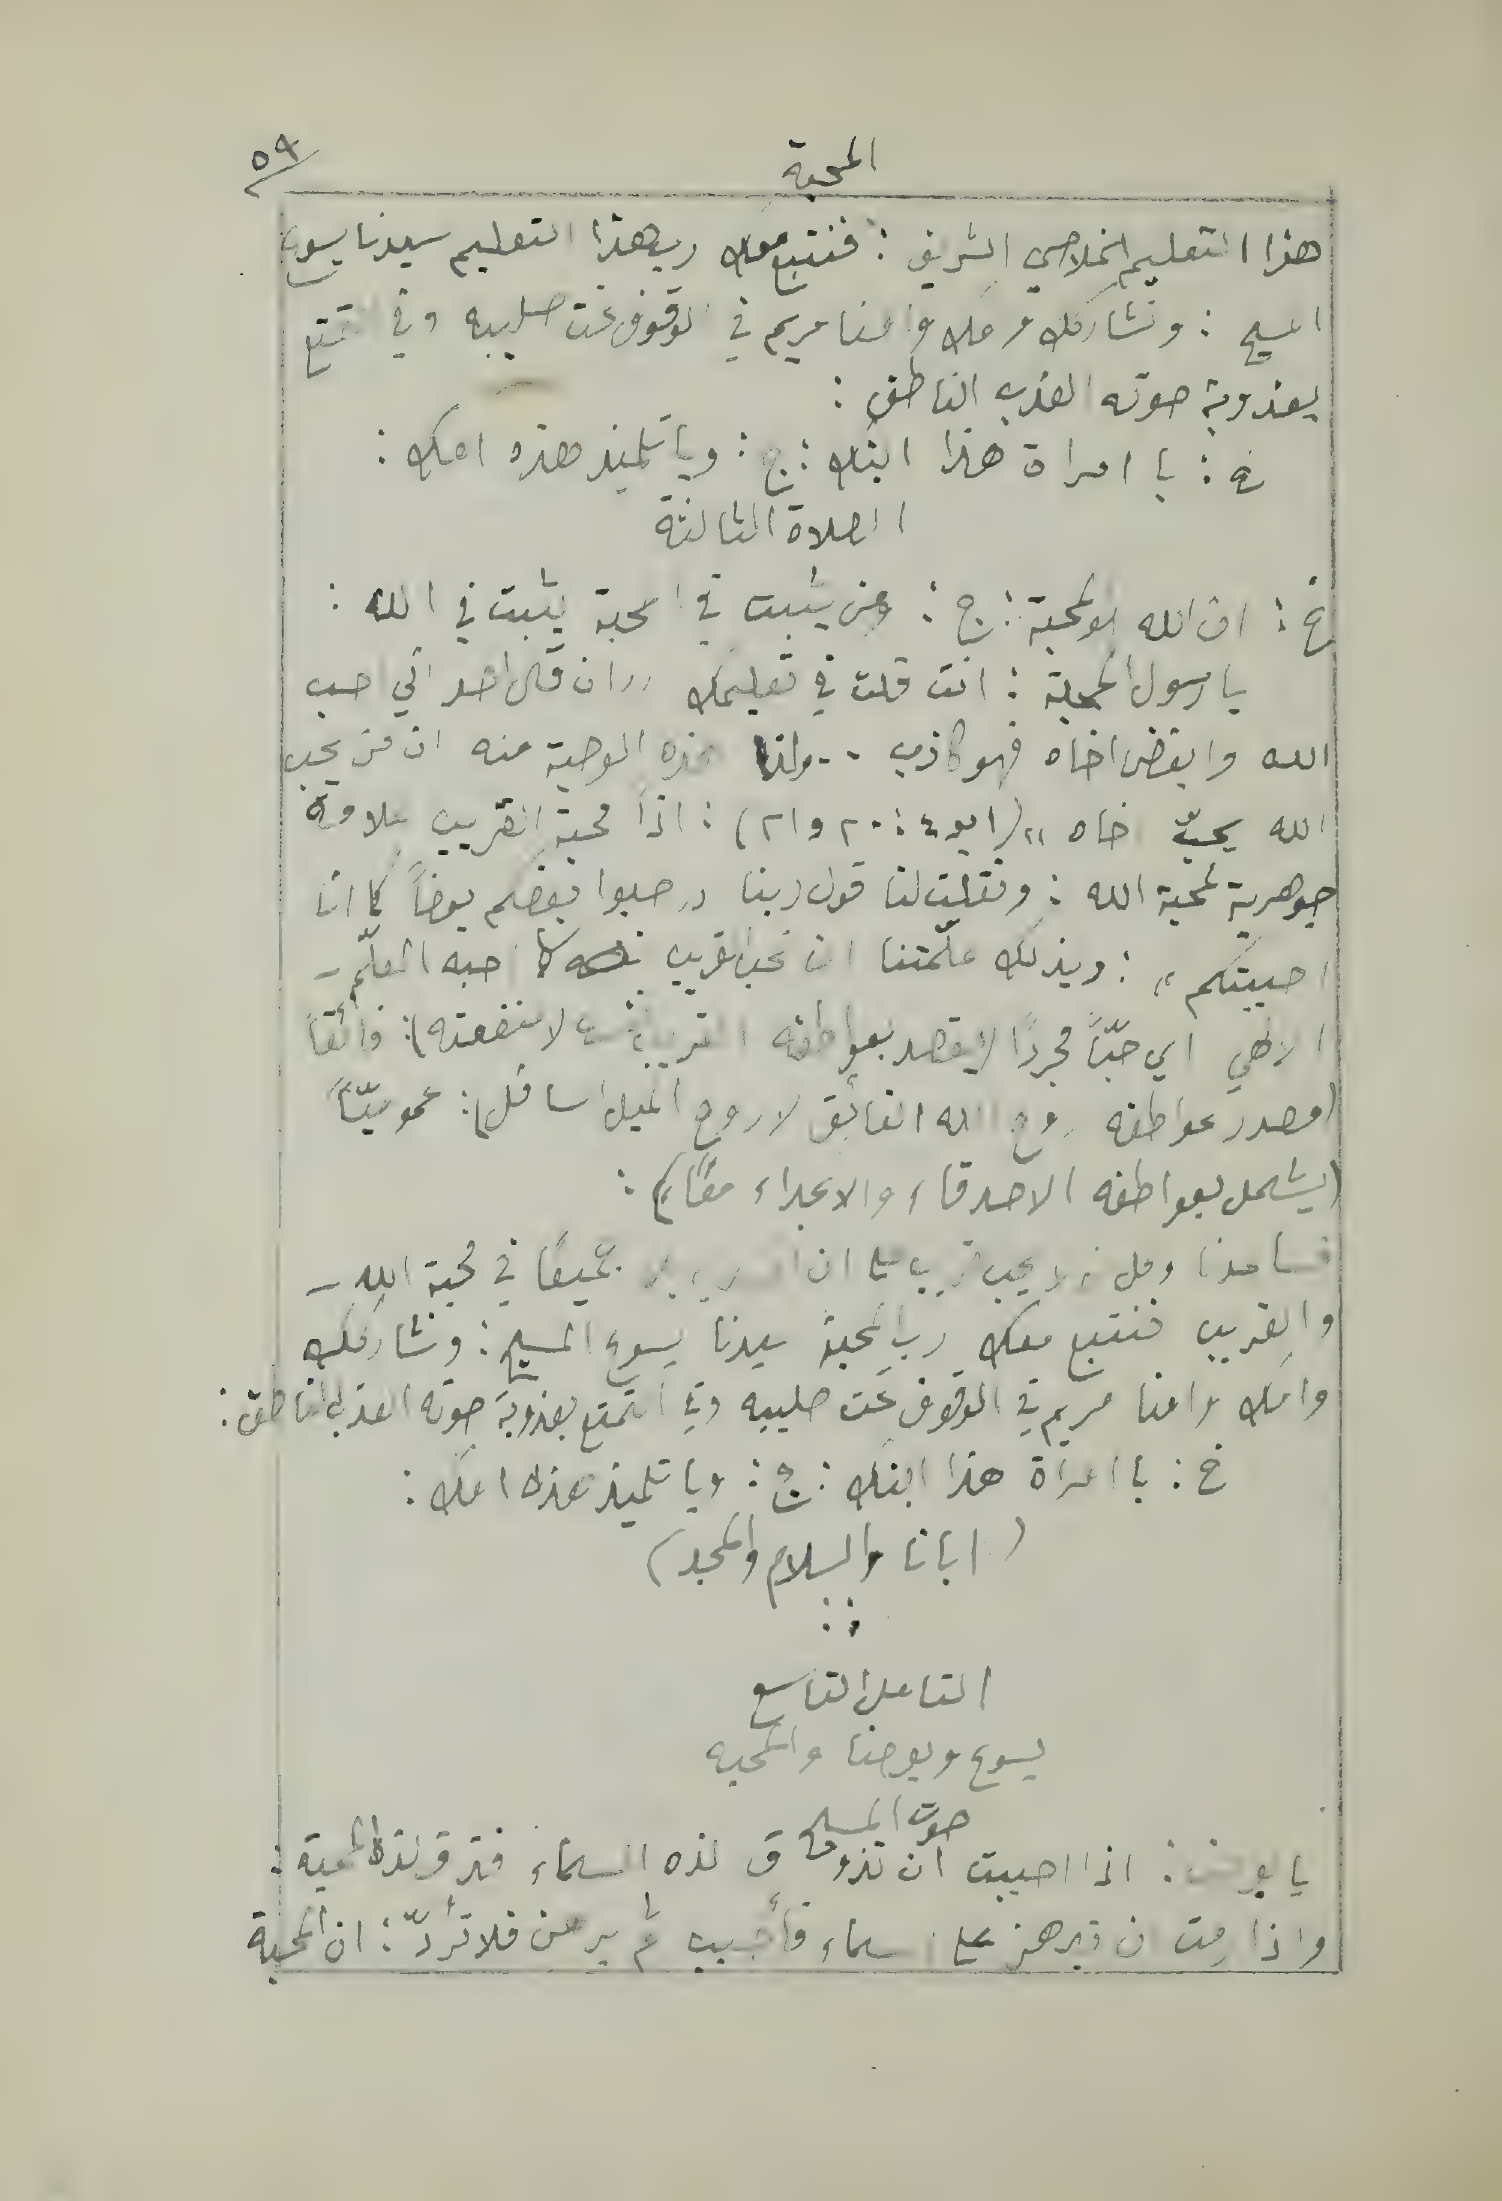 المحبة ٥٩
هذا التعليم الخلاصي الشريف : فنتبع معك رب هذا التعليم سيدنا يسوع
المسيح : ونشاركك وامك وامنا مريم في الوقوف تحت صليبه وفي التمتع
بعذوبة صوته العذب الناطق :
خ : يا امراة هذا ابنك : ج : ويا تلميذ هذه امك :
الصلاة الثالثة
خ : ان الله هو المحبة : ج : ومن يثبت في المحبة يثبت في الله :
يا رسول المحبة : انت قلت في تعليمك ,, ان قال احد اني احب
الله وابغض اخاه فهو كاذب .. ولنا هذه الوصية منه ان من يحب
الله يحبّ اخاه ,, (١يو٤ : ٢٠ و٢١) : اذاً محبة القريب علامة
جوهرية لمحبة الله : ونقلت لنا قول ربنا ,, حبوا بعضكم بعضاً كما انا
احببتكم ,, : وبذلك علّمتنا ان نحب القريب كما احبه المعلّم –
الالهي اي حبّاً مجردًا (لا يقصد بعواطفه القريب لا منفعته) : فائقاً
(مصدر عواطفه روح الله الفائق لا روح الميل السافل) : عموميّاً
(يشمل بعواطفه الاصدقاء والاعداء معًا) :
فساعدنا جميعًا في محبة الله –
والقريب فنتبع معك رب المحبة سيدنا يسوع المسيح : ونشاركك
وامك وامنا مريم في الوقوف تحت صليبه وفي التمتع بعذوبة صوته العذب الناطق :
خ : يا امراة هذا ابنك : ج : ويا تلميذ هذه امك :
(ابانا والسلام والمجد)
التامل التاسع
يسوع ويوحنا والمحبه
صوت المسيح
يا يوحنا : اذا احببت ان تذوق لذه السماء فتذوق لذة المحبة :
واذا رمت ان تبرهن على السماء فأجيب ثم برهن فلا تُردّ : ان المحبة